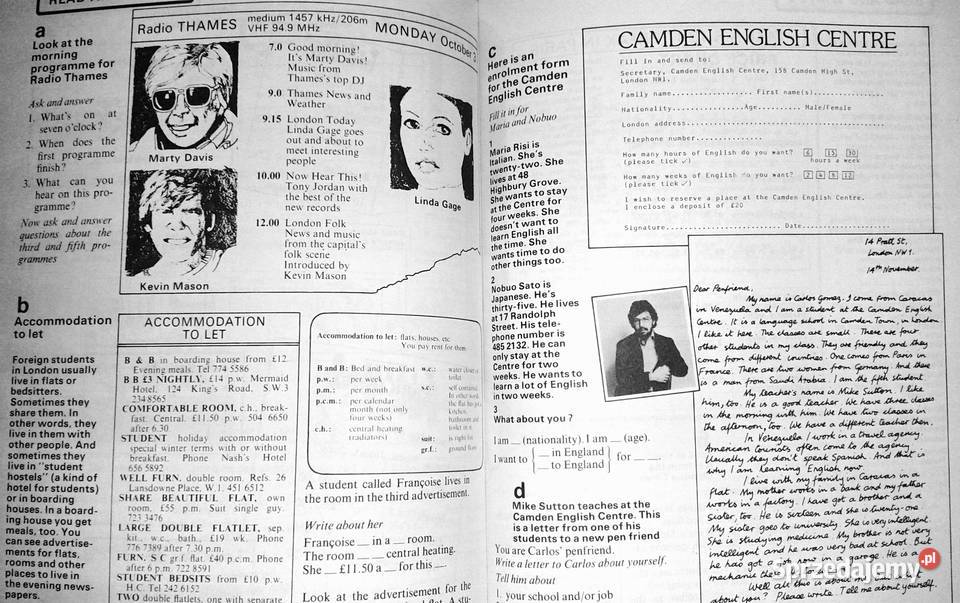 a
Look at the
morning
programme for
Radio Thames
Ask and answer
1. What's on at
seven o'clock?
2. When does the
first programme
finish?
3. What can you
hear on this pro-
gramme?
Now ask and answer
questions about the
third and fifth pro-
grammes
Radio THAMES
medium 1457 kHz/206m
VHF 94.9 MHz
MONDAY October
7.0 Good morning!
It's Marty Davis!
Music from
Thames's top DJ
9.0 Thames News and
Weather
9.15 London Today
Linda Gage goes
out and about to
meet interesting
people
10.00 Now Hear This!
Tony Jordan with
the best of the
new records
12.00 London Folk
News and music
from the capital's
folk scene
Introduced by
Kevin Mason
Marty Davis
Kevin Mason
Linda Gage
b
Accommodation
to let
Foreign students
in London usually
live in flats or
bedsitters.
Sometimes they
share them. In
other words, they
live in them with
other people. And
sometimes they
live in "student
hostels" (a kind of
hotel for students)
or in boarding
houses. In a board-
ing house you get
meals, too. You
can see advertise-
ments for flats,
rooms and other
places to live in
the evening news-
papers.
ACCOMMODATION
TO LET
B & B in boarding house from £12.
Evening meals. Tel 774 5586
B B £3 NIGHTLY, £14 p.w. Mermaid
Hotel, 124 King's Road, S.W.3
234 8565
COMFORTABLE ROOM, c.h., break-
fast. Central. £11.50 p.w. 504 6650
after 6.30
STUDENT holiday accommodation
special winter terms with or without
breakfast. Phone Nash's Hotel
656 5892
WELL FURN. double room. Refs. 26
Lansdowne Place, W.1. 451 6512
SHARE BEAUTIFUL FLAT, own
room, £55 p.m. Suit single guy.
723 3476
LARGE DOUBLE FLATLET, sep.
kit., w.c., bath., £19 wk. Phone
776 7389 after 7.30 p.m.
FURN. S C gr.f. flat. £40 p.c.m. Phone
after 6 p.m. 722 8591
STUDENT BEDSITS from £10 p.w.
H.C. Tel 242 6152
TWO double flatlets, one with separate
Accommodation to let: flats, houses, etc.
You pay rent for them
B and B: Bed and breakfast
p.w.: per week
p.m.: per month
p.c.m.: per calendar
month (not only
four weeks)
c.h.: central heating
(radiators)
w.c.: water closet
toilet
s.c.: self contained
In other words
kitchen,
bathroom and
toilet in it
suit: is right for
gr.f.: ground floor
A student called Françoise lives in
the room in the third advertisement.
Write about her
Françoise __ in a __ room.
The room __ __ central heating.
She __ £11.50 a __ for this __.
Look at the advertisement for the
c
Here is an
enrolment form
for the Camden
English Centre
Fill it in for
Maria and Nobuo
1
Maria Risi is
Italian. She's
twenty-two. She
lives at 48
Highbury Grove.
She wants to stay
at the Centre for
four weeks. She
doesn't want to
learn English all
the time. She
wants time to do
other things too.
2
Nobuo Sato is
Japanese. He's
thirty-five. He lives
at 17 Randolph
Street. His tele-
phone number is
485 2132. He can
only stay at the
Centre for two
weeks. He wants to
learn a lot of English
in two weeks.
3
What about you?
I am __ (nationality). I am __ (age).
I want to { __ in England
__ to England } for __ __.
CAMDEN ENGLISH CENTRE
Fill in and send to:
Secretary, Camden English Centre, 158 Camden High St,
London NW1.
Family name.................. First name(s)...............
Nationality................Age.......... Male/Female
London address...........................................
Telephone number..............
How many hours of English do you want? 6 15 30
(please tick ✓) hours a week
How many weeks of English do you want? 2 4 8 12
(please tick ✓)
I wish to reserve a place at the Camden English Centre.
I enclose a deposit of £20
Signature......................... Date.................
d
Mike Sutton teaches at the
Camden English Centre. This
is a letter from one of his
students to a new pen friend
You are Carlos' penfriend.
Write a letter to Carlos about yourself.
Tell him about
1. your school and/or job
14 Pratt St,
London NW1.
14th November.
Dear Penfriend,
My name is Carlos Gomez. I come from Caracas
in Venezuela and I am a student at the Camden English
Centre. It is a language school in Camden Town, in London
I like it here. The classes are small. There are four
other students in my class. They are friendly and they
come from different countries. One comes from Paris in
France. There are two women from Germany. And there
is a man from Saudi Arabia. I am the fifth student
My teacher's name is Mike Sutton. I like
him, too. He is a good teacher. We have three classes
in the morning with him. We have two classes in
the afternoon, too. We have a different teacher then.
In Venezuela I work in a travel agency.
American tourists often come to the agency.
Usually they don't speak Spanish. And that is
why I am learning English now.
I live with my family in Caracas in a
flat. My mother works in a bank and my father
works in a factory. I have got a brother and a
sister, too. He is sixteen and she is twenty-one
My sister goes to university. She is very intelligent
She is studying medicine. My brother is not very
intelligent and he was very bad at school. But
he has got a job now in a garage. He is a
mechanic there
Well all this is about my
about you? Please write. Tell me about yourself.
Sprzedajemy.pl